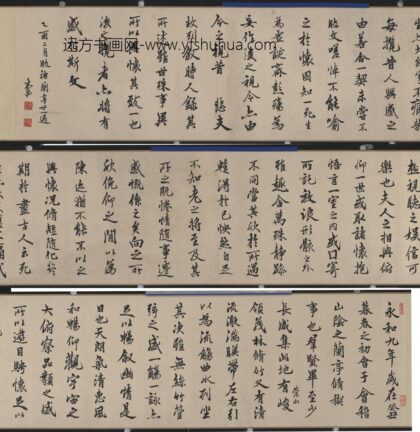 远方书画网-www.yfshuhua.com
每攬昔人興感之
由若合一契未嘗不
臨文嗟悼不能喻
之於懷固知一死生
為虛誕齊彭殤為
妄作後之視今亦由
今之視昔 悲夫
故列敘時人錄其
所述雖世殊事異
所以興懷其致一也
後之攬者亦將有
感於斯文
乙酉二月臨
極視聽之娛信可
樂也夫人之相與俯
仰一世或取諸懷抱
悟言一室之內或因寄
所託放浪形骸之外
雖趣舍萬殊靜躁
不同當其欣於所遇
蹔得於己怏然自足
不知老之將至及其
所之既惓情隨事遷
感慨係之矣向之所
欣俛仰之閒以為
陳迹猶不能不以之
興懷況脩短隨化終
期於盡古人云死
永和九年歲在癸
暮春之初會于會稽
山陰之蘭亭脩稧
事也羣賢畢至少
長咸集此地有
崇山
峻
領茂林脩竹又有清
流激湍暎帶左右引
以為流觴曲水列坐
其次雖無絲竹管
絃之盛一觴一詠亦
足以暢叙幽情是
日也天朗氣清惠風
和暢仰觀宇宙之
大俯察品類之盛
所以遊目騁懷足以